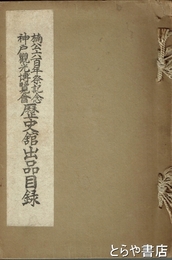 楠公六百年祭記念
神戸觀光博覽會
歴史館出品目録
とらや書店